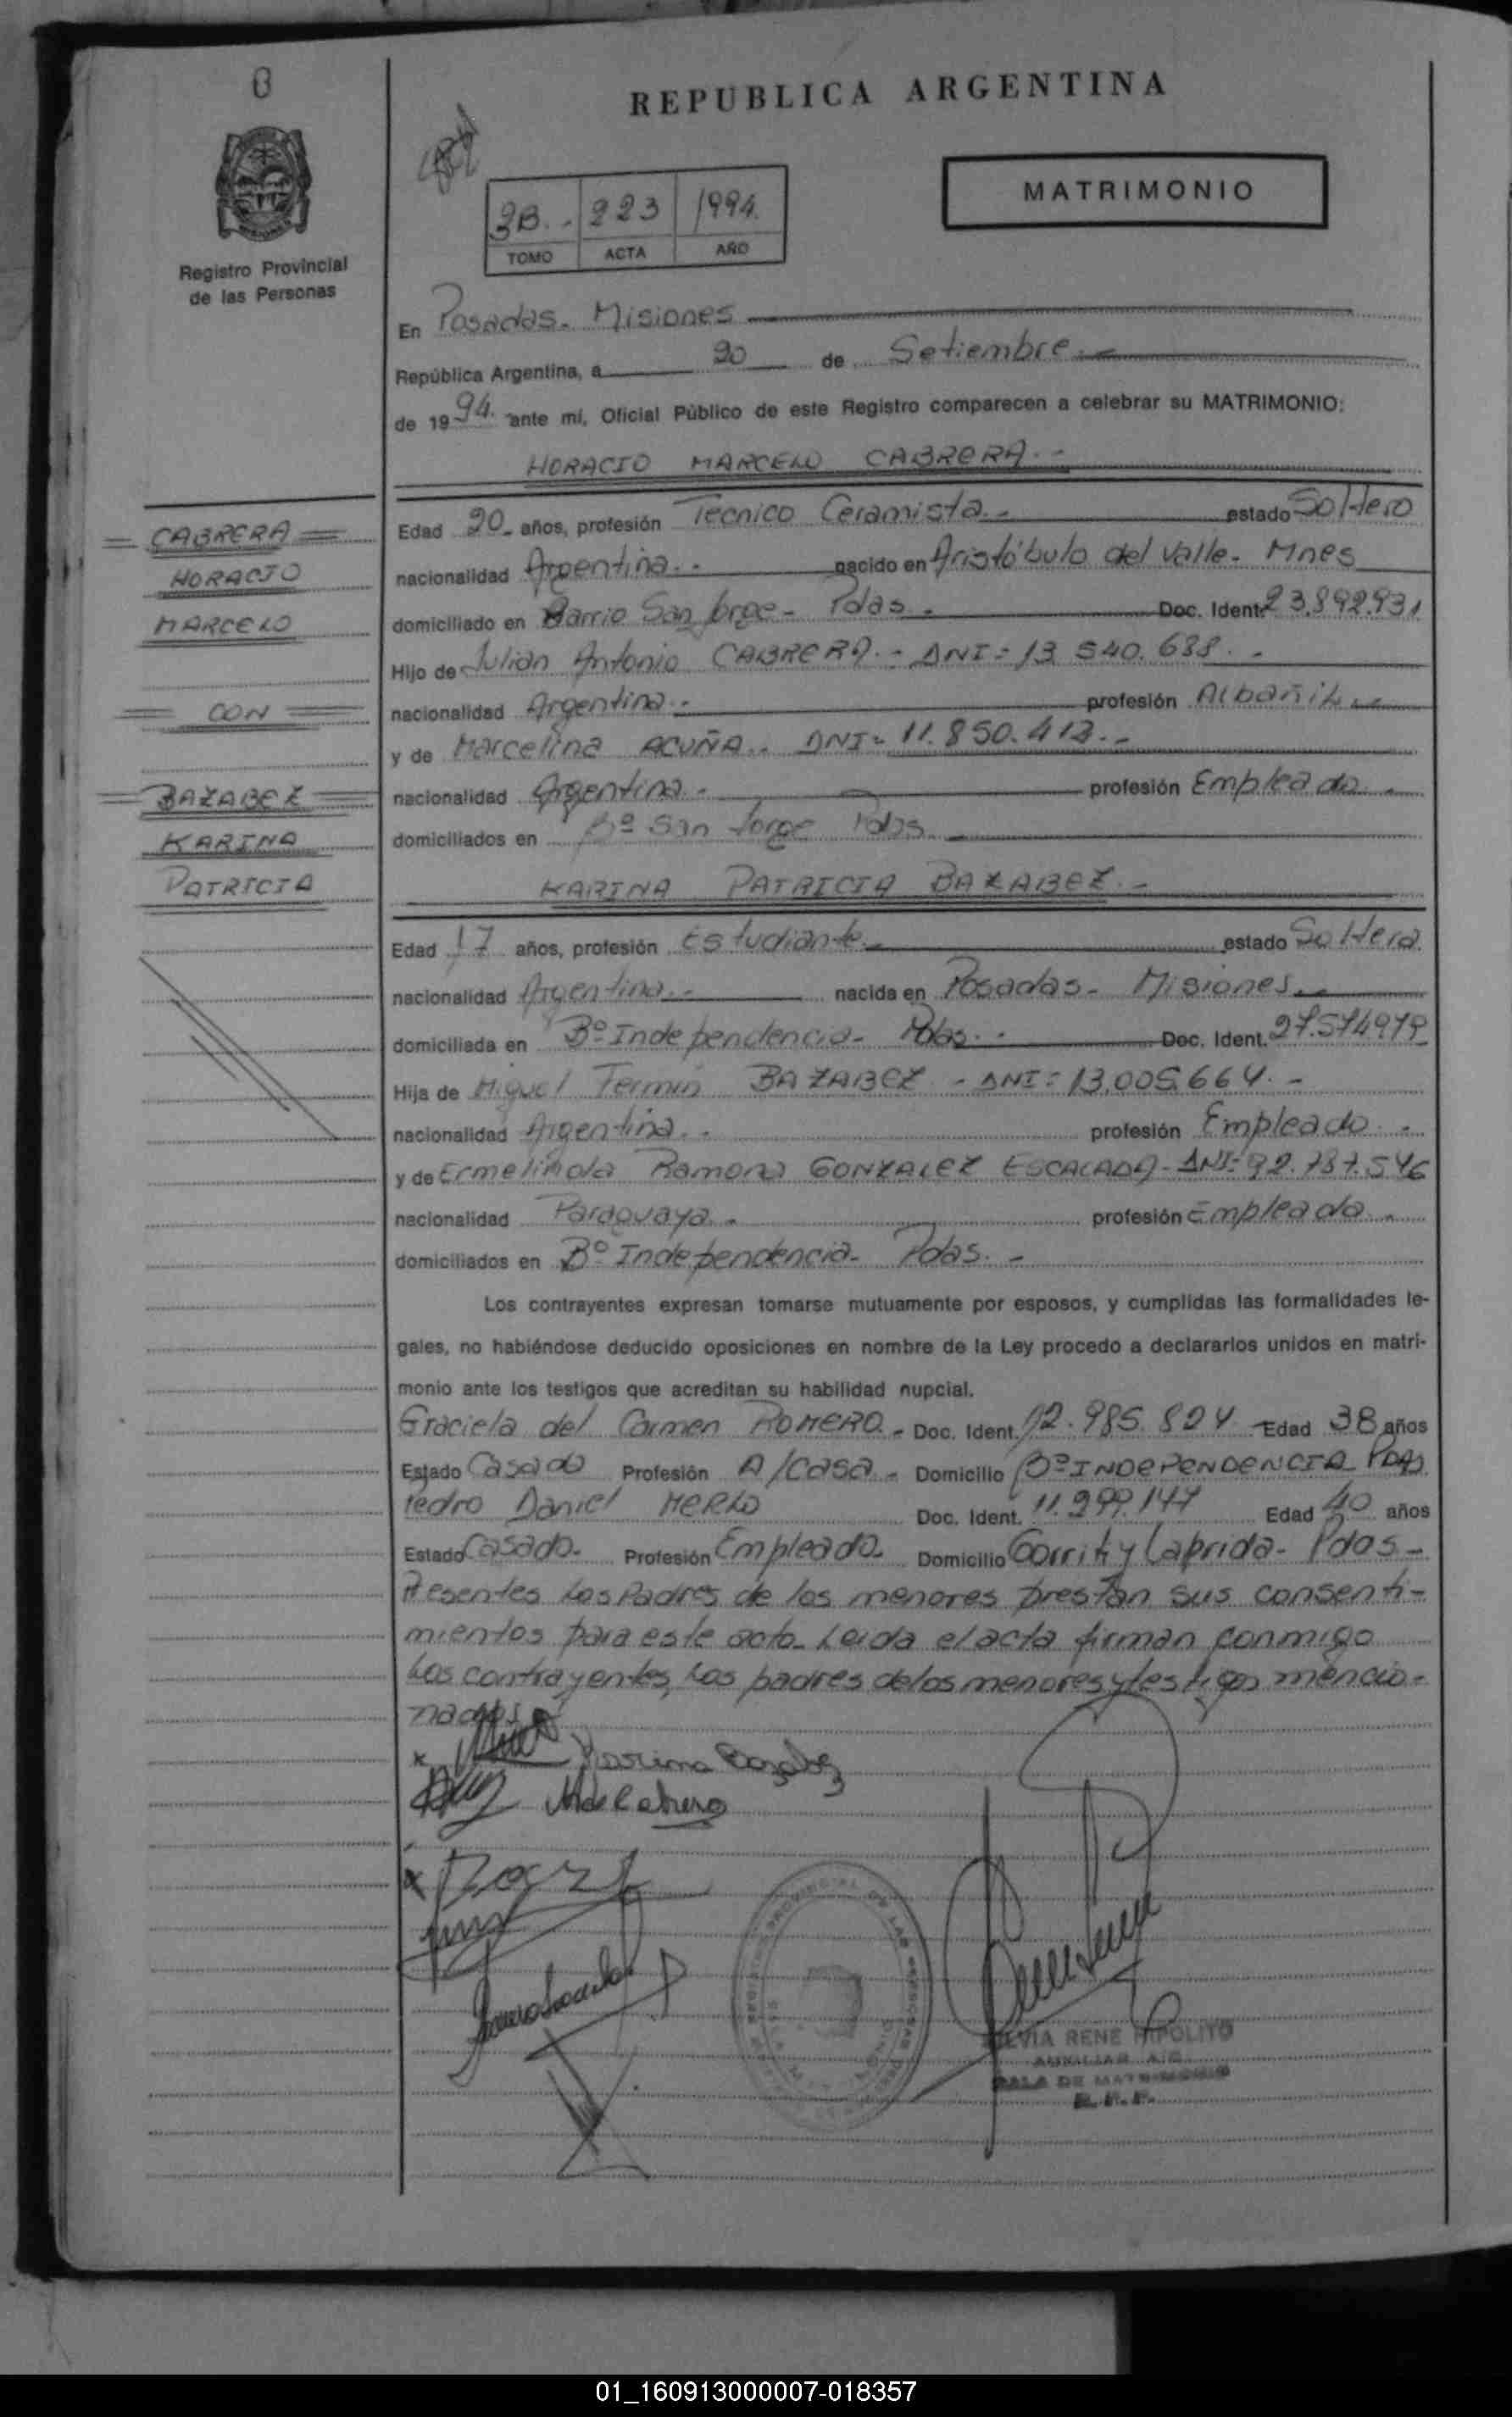 REPUBLICA ARGENTINA
MATRIMONIO
3B.- 223 1994.
TOMO ACTA AÑO
Registro Provincial
de las Personas
En Posadas. Misiones
República Argentina, a 20 de Setiembre.-
de 1994. ante mí, Oficial Público de este Registro comparecen a celebrar su MATRIMONIO:
HORACIO MARCELO CABRERA.-
CABRERA
HORACIO
MARCELO
CON
BAZABEZ
KARINA
PATRICIA
Edad 20. años, profesión Tecnico Ceramista.- estado Soltero
nacionalidad Argentina.- nacido en Aristóbulo del Valle- Mnes
domiciliado en Barrio San Jorge- Pdas. Doc. Ident. 23.892.931
Hijo de Julián Antonio CABRERA.- DNI= 13.540.688.-
nacionalidad Argentina.- profesión Albañil.-
y de Marcelina ACUÑA.. DNI= 11.850.413.-
nacionalidad Argentina.- profesión Empleada.
domiciliados en Bº San Jorge Pdas
KARINA PATRICIA BAZABEZ.-
Edad 17 años, profesión Estudiante.- estado Soltera
nacionalidad Argentina.- nacida en Posadas- Misiones.-
domiciliada en Bº Independencia- Pdas.. Doc. Ident. 27.574979
Hija de Miguel Fermin BAZABEZ - DNI= 13.005.664.-
nacionalidad Argentina.. profesión Empleado.-
y de Ermelinda Ramona GONZALEZ ESCALADA- DNI= 92.787.546
nacionalidad Paraguaya. profesión Empleada.
domiciliados en Bº Independencia- Pdas.-
Los contrayentes expresan tomarse mutuamente por esposos, y cumplidas las formalidades le-
gales, no habiéndose deducido oposiciones en nombre de la Ley procedo a declararlos unidos en matri-
monio ante los testigos que acreditan su habilidad nupcial.
Graciela del Carmen ROMERO.- Doc. Ident. 12.985.824 Edad 38 años
Estado Casada Profesión A/Casa- Domicilio Bº INDEPENDENCIA Pdas
Pedro Daniel MERLO Doc. Ident. 11.299.147 Edad 40 años
Estado Casado. Profesión Empleado. Domicilio Gorriti y Laprida- Pdas-
Presentes Los Padres de los menores prestan sus consenti-
mientos para este acto- Leida el acta firman conmigo
Los contrayentes, Los padres de los menores y testigos mencio-
nados
Karina Bazabez
SILVIA RENE HIPOLITO
AUXILIAR A/C
SALA DE MATRIMONIO
R.P.P.
01_160913000007-018357